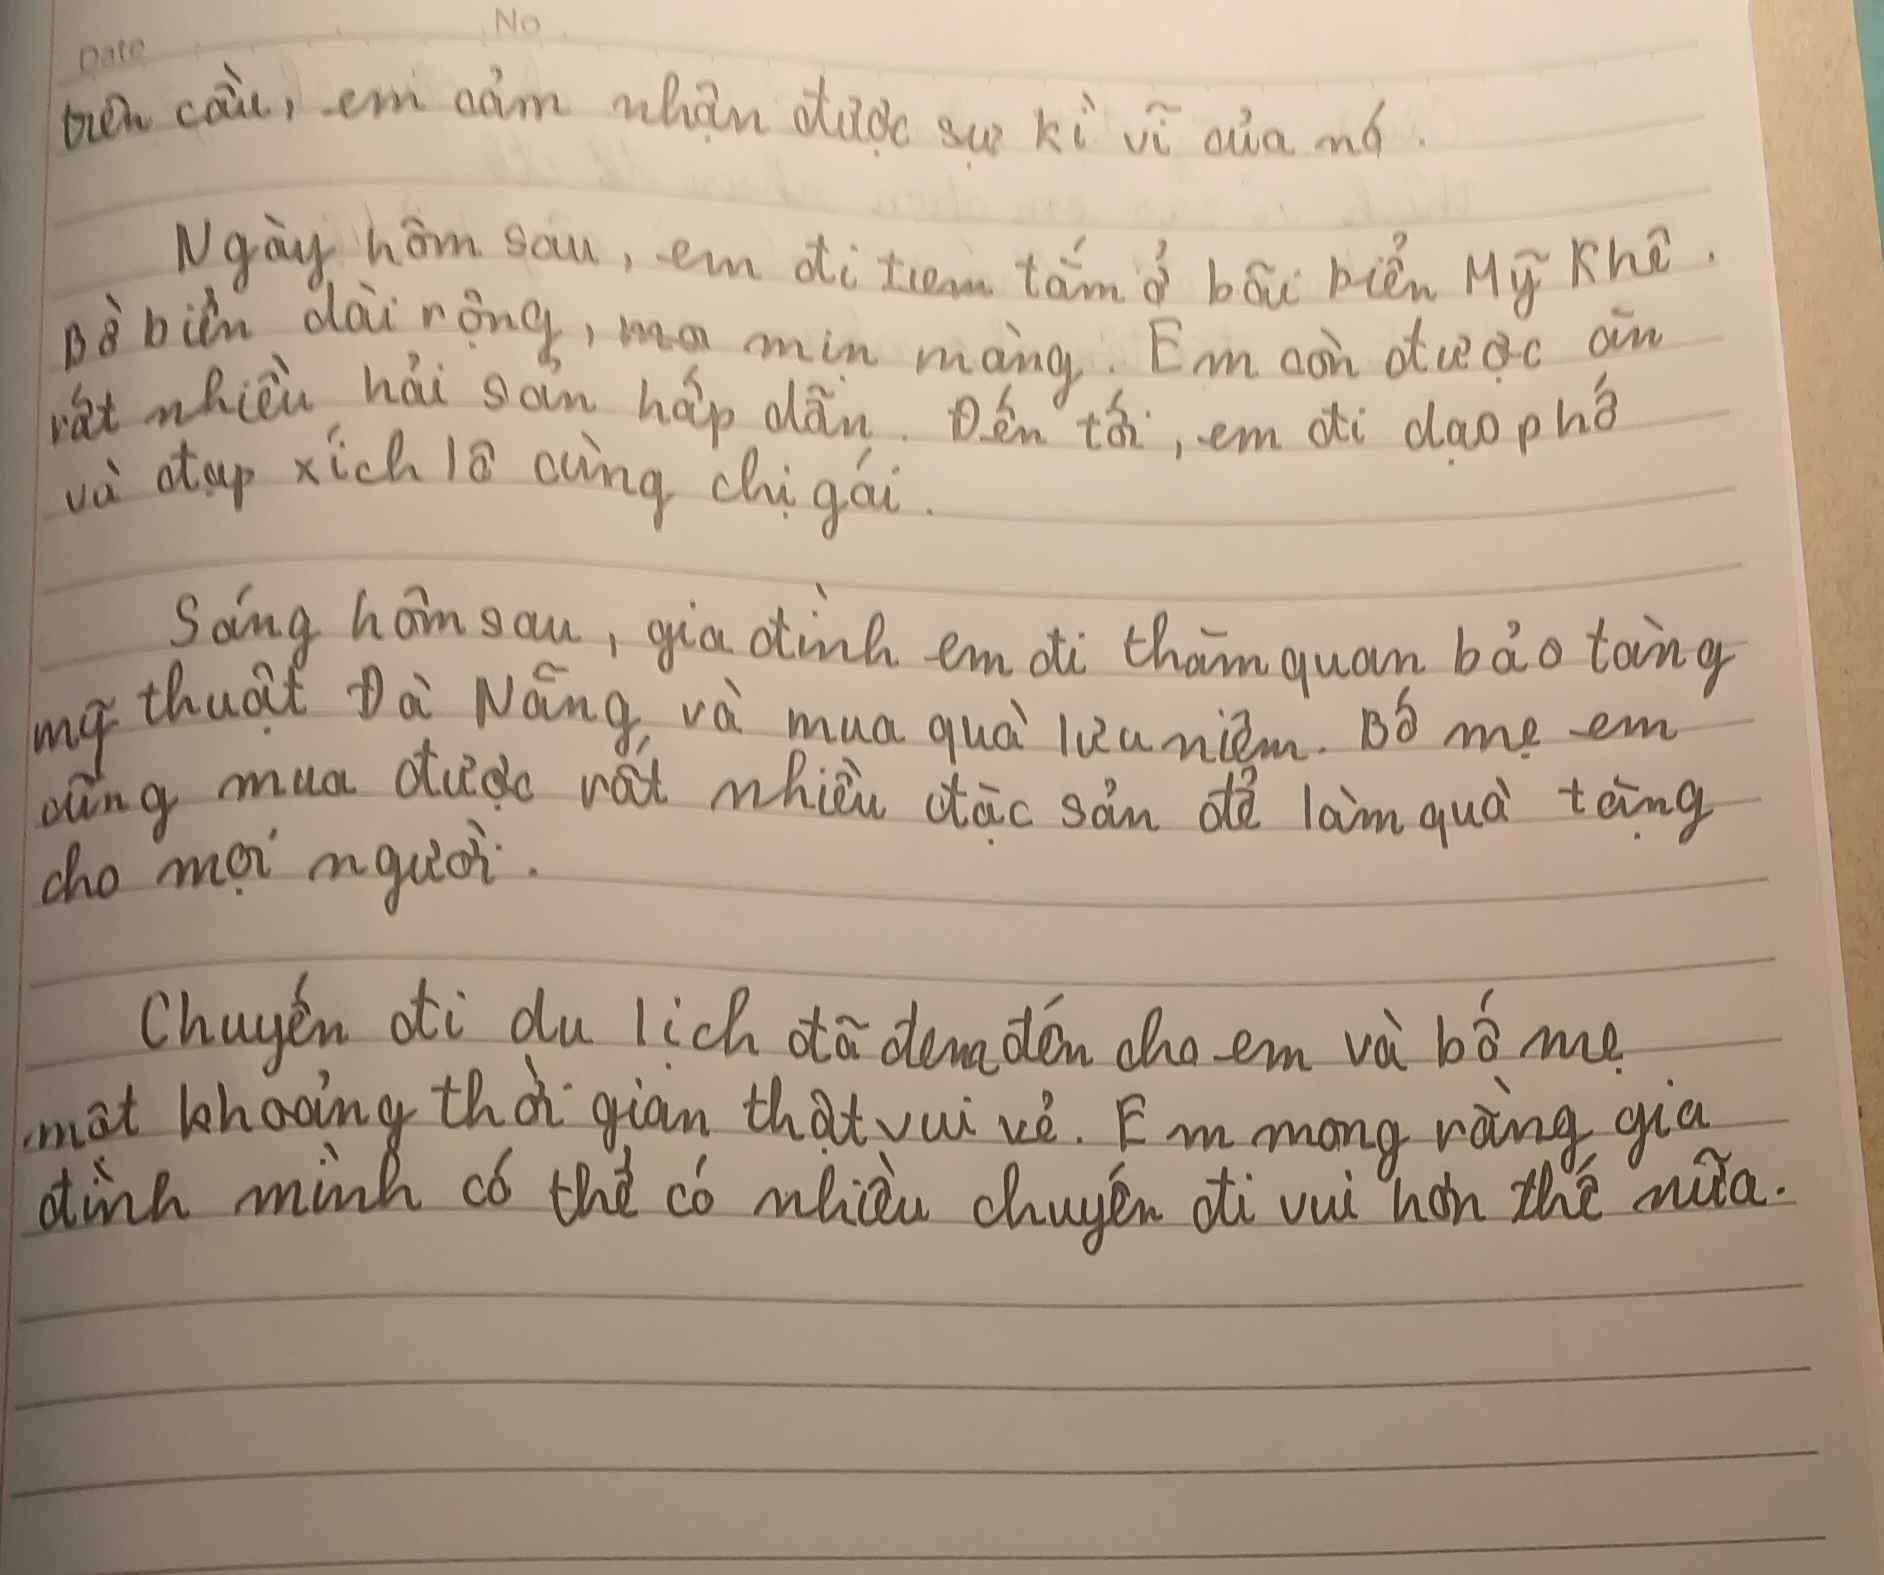 No
Date
trên cầu, em cảm nhận được sự kì vĩ của nó.
Ngày hôm sau, em đi tắm ở bãi biển Mỹ Khê.
Bờ biển dài rộng, mịn màng. Em còn được ăn
rất nhiều hải sản hấp dẫn. Đến tối, em đi dạo phố
và đạp xích lô cùng chị gái.
Sáng hôm sau, gia đình em đi thăm quan bảo tàng
mỹ thuật Đà Nẵng, và mua quà lưu niệm. Bố mẹ em
cũng mua được rất nhiều đặc sản để làm quà tặng
cho mọi người.
Chuyến đi du lịch đã đem đến cho em và bố mẹ
một khoảng thời gian thật vui vẻ. Em mong rằng gia
đình mình có thể có nhiều chuyến đi vui hơn thế nữa.